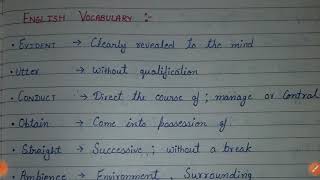 ENGLISH VOCABULARY :-
• EVIDENT → Clearly revealed to the mind
• Utter → Without qualification
• CONDUCT → Direct the course of ; manage or Control
• Obtain → Come into possession of
• Straight → Successive ; without a break
• Ambience → Environment, Surrounding